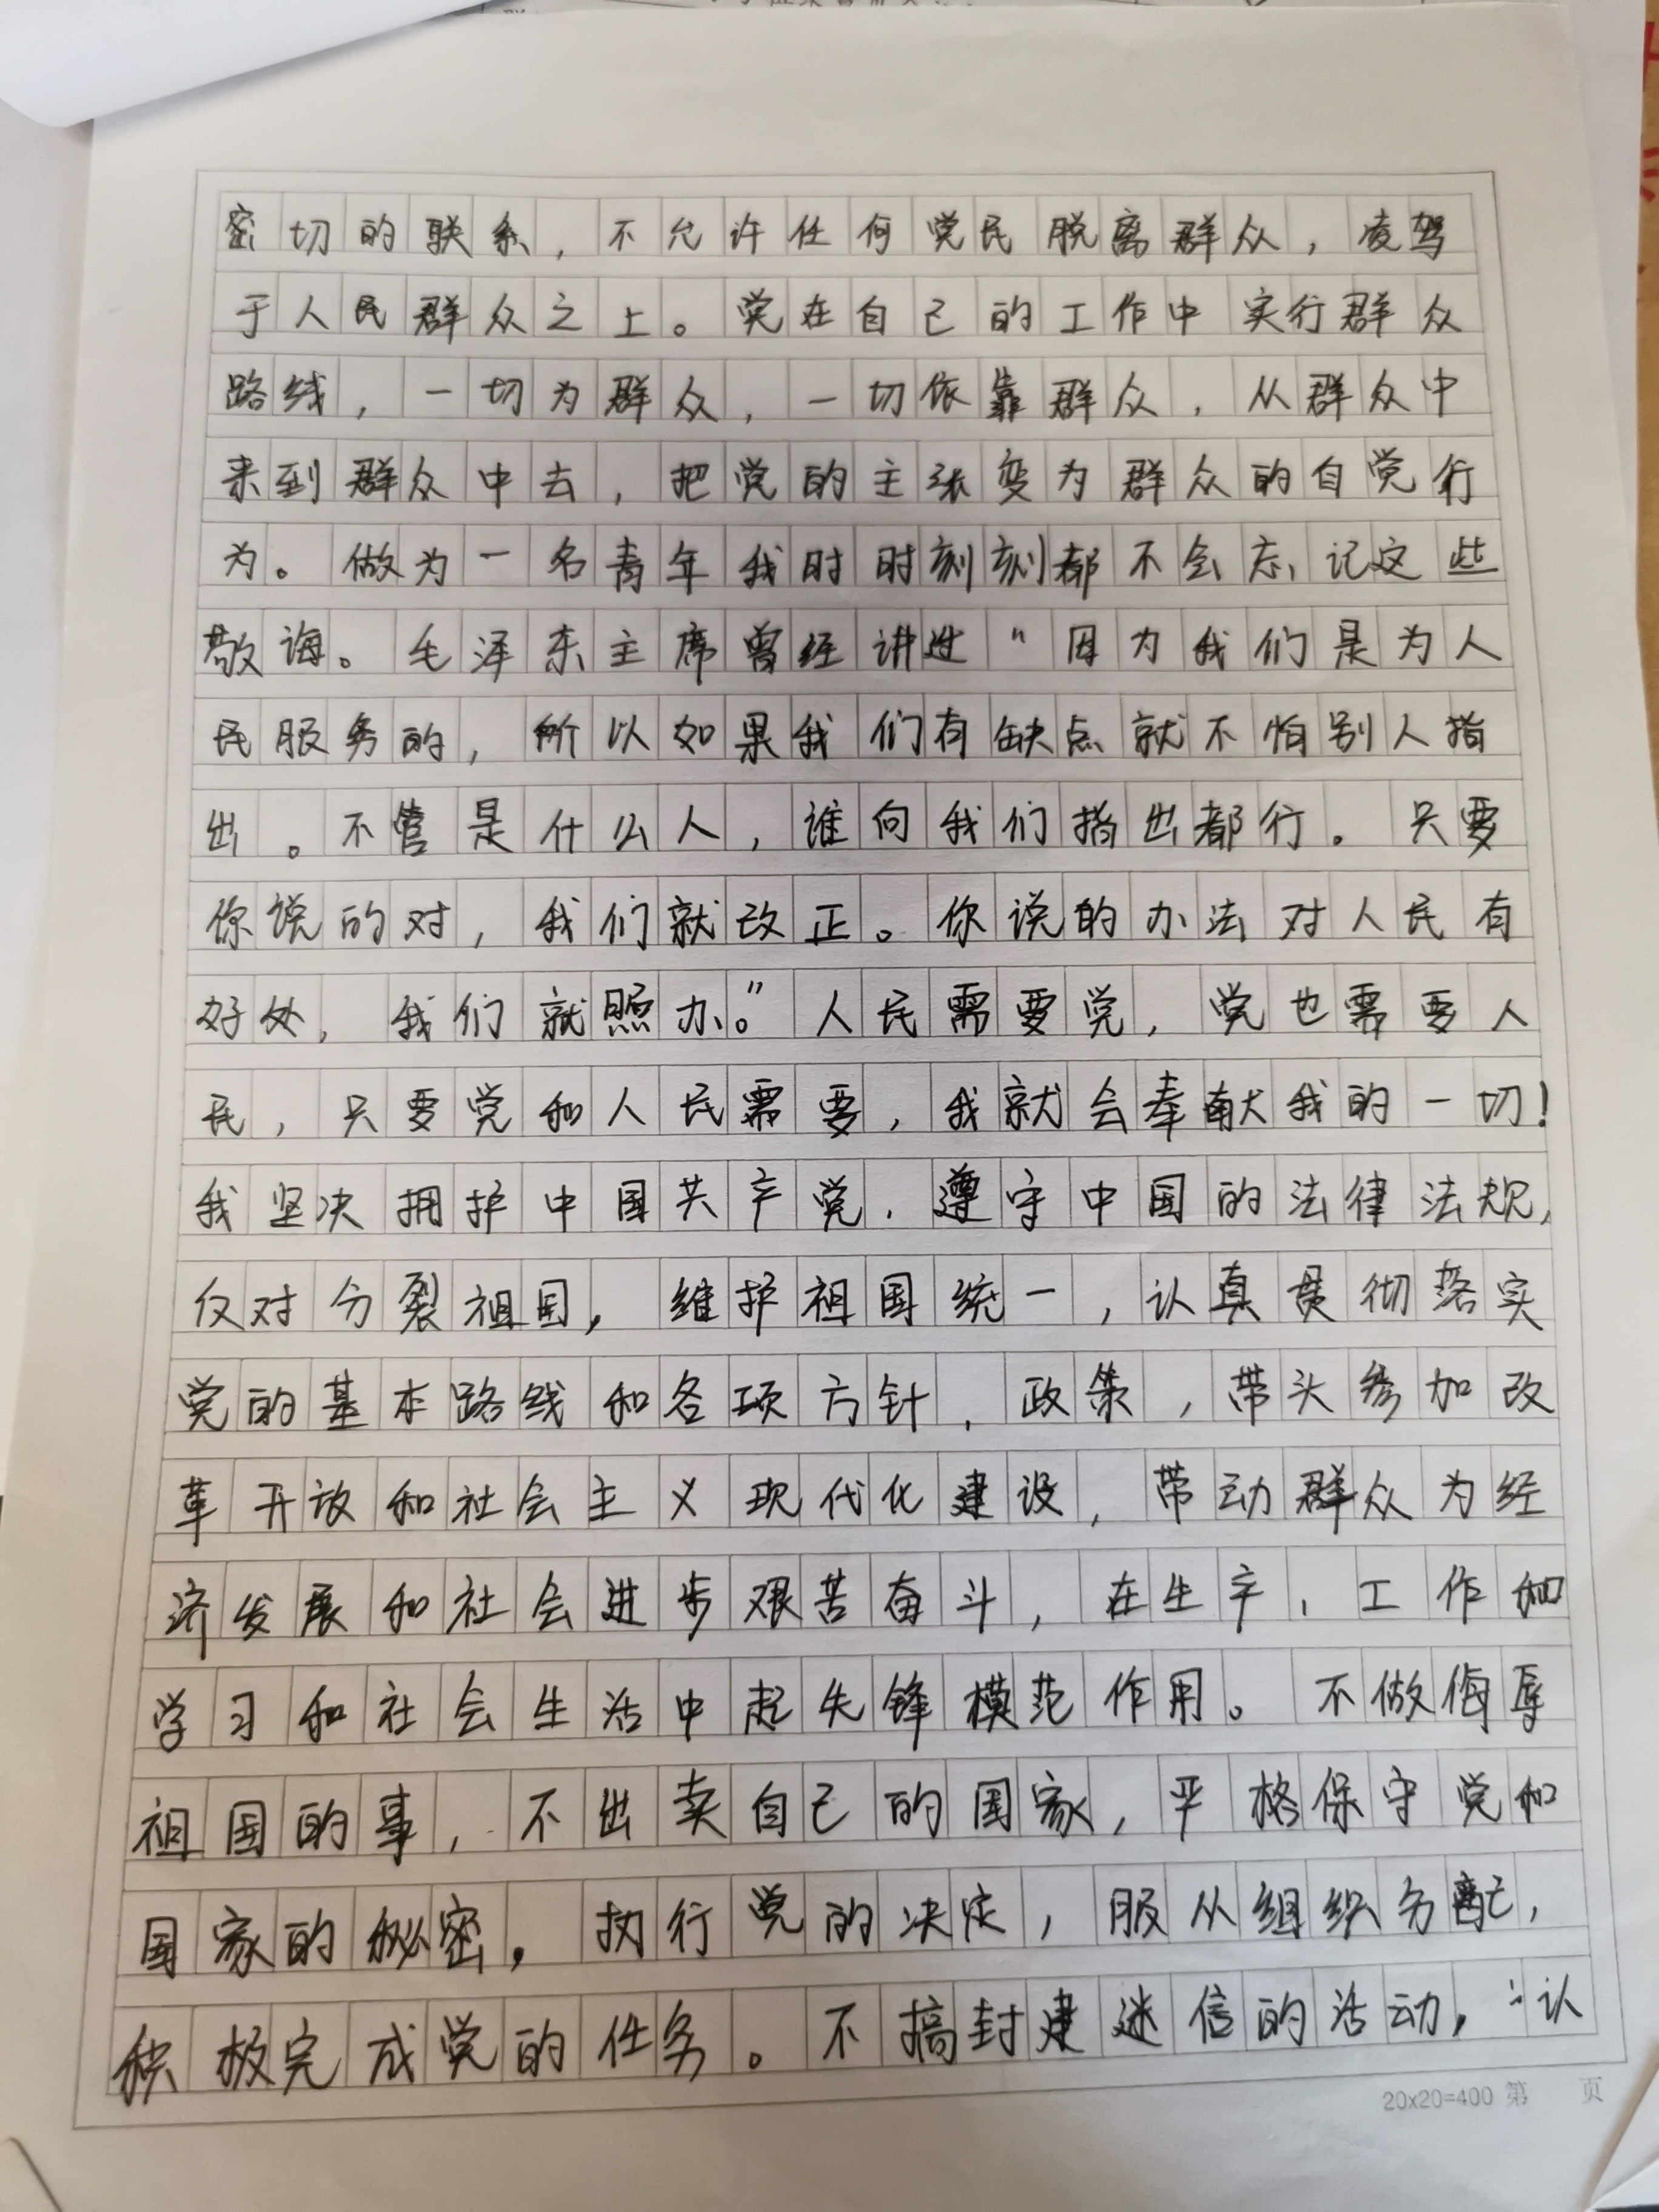 密切的联系，不允许任何党民脱离群众，凌驾
于人民群众之上。党在自己的工作中实行群众
路线，一切为群众，一切依靠群众，从群众中
来到群众中去，把党的主张变为群众的自党行
为。做为一名青年我时时刻刻都不会忘记这些
教诲。毛泽东主席曾经讲过"因为我们是为人
民服务的，所以如果我们有缺点就不怕别人指
出。不管是什么人，谁向我们指出都行。只要
你说的对，我们就改正。你说的办法对人民有
好处，我们就照办。"人民需要党，党也需要人
民，只要党和人民需要，我就会奉献我的一切！
我坚决拥护中国共产党，遵守中国的法律法规，
仅对分裂祖国，维护祖国统一，认真贯彻落实
党的基本路线和各项方针，政策，带头参加改
革开放和社会主义现代化建设，带动群众为经
济发展和社会进步艰苦奋斗，在生产，工作和
学习和社会生活中起先锋模范作用。不做侮辱
祖国的事，不出卖自己的国家，严格保守党和
国家的秘密，执行党的决定，服从组织分配，
积极完成党的任务。不搞封建迷信的活动，认
20x20=400 第 页